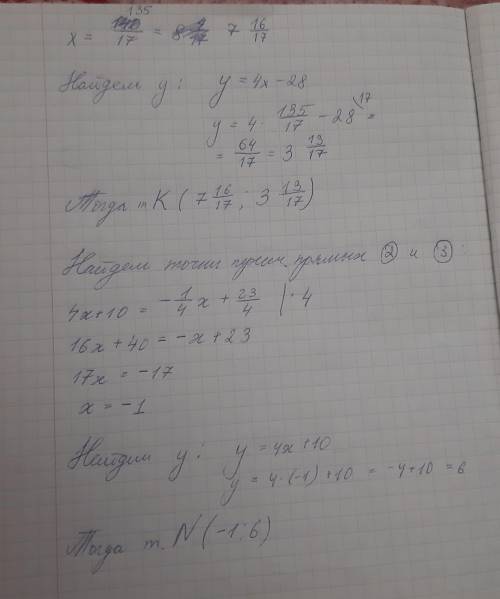 x = 135/17 = 7 16/17
Найдем y: y = 4x - 28
y = 4 · 135/17 - 28 \17 =
= 64/17 = 3 13/17
Тогда т. K (7 16/17 ; 3 13/17)
Найдем точки пересеч. прямых ② и ③ :
4x+10 = -1/4 x + 23/4 | · 4
16x + 40 = -x + 23
17x = -17
x = -1
Найдем y: y = 4x+10
y = 4·(-1)+10 = -4+10 = 6
Тогда т. N (-1; 6)